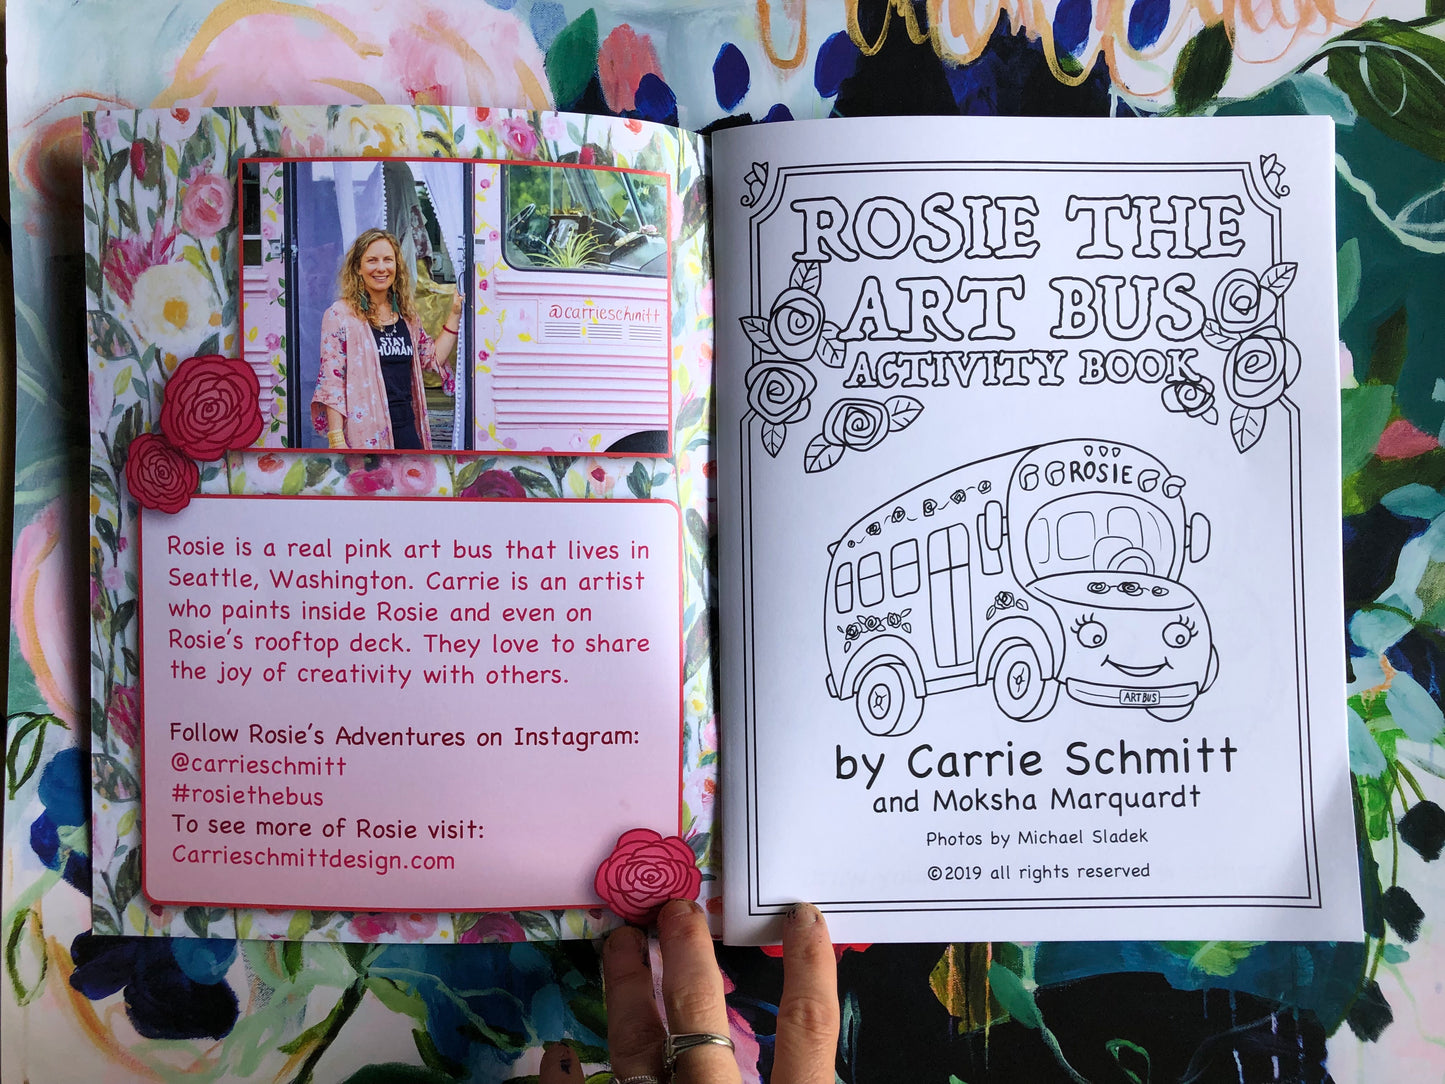 @carrieschmitt
STAY
HUMAN
Rosie is a real pink art bus that lives in
Seattle, Washington. Carrie is an artist
who paints inside Rosie and even on
Rosie's rooftop deck. They love to share
the joy of creativity with others.
Follow Rosie's Adventures on Instagram:
@carrieschmitt
#rosiethebus
To see more of Rosie visit:
Carrieschmittdesign.com
ROSIE THE
ART BUS
ACTIVITY BOOK
ROSIE
ART BUS
by Carrie Schmitt
and Moksha Marquardt
Photos by Michael Sladek
©2019 all rights reserved